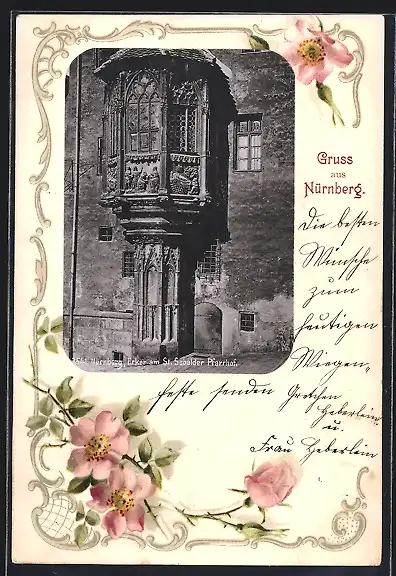 Gruss
aus
Nürnberg.
3561. Nürnberg, Erker am St. Sebalder Pfarrhof.
Die besten
Wünsche
zum
heutigen
Wiegen„
feste senden Gretchen
Heberlein
u.
Frau Heberlein